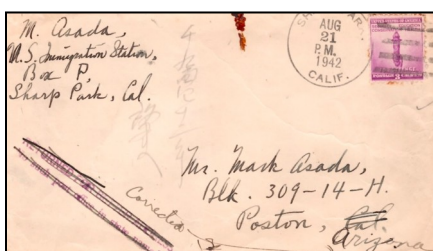 M. Asada,
U.S. Immigration Station,
Box P,
Sharp Park, Cal.
AUG
21
P.M.
1942
CALIF.
Mr. Mark Asada,
Blk. 309-14-H.
Poston, Cal.
Arizona
Corrected